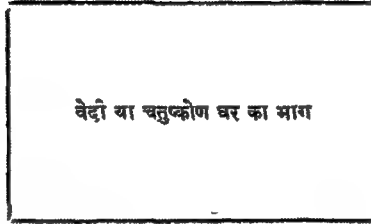 वेदी या चतुष्कोण घर का भाग